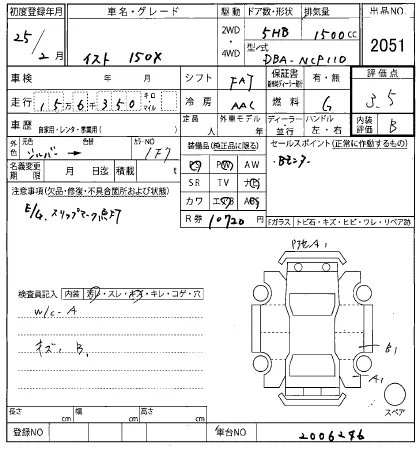 初度登録年月 車名・グレード 駆動 ドア数・形状 排気量 出品NO
25年 2月 イスト 150X 2WD・4WD 5HB 1500cc 2051
型/式 DBA-NCP110
車検 年 月 シフト FAT 保証書 有・無 評価点
走行 15万6千350 キロ・マイル 冷房 AAC 燃料 G 3.5
車歴 自家用・レンタ・事業用( ) 定員 人 外車モデル 年 ディーラー・並行 ハンドル 左・右 内装評価 B
外色 元色 シルバー 色替 カラーNO 1F7 装備品(純正品に限る) セールスポイント(正常に作動するもの)
PS PW AW Bモニター
名義変更期限 月 日迄 積載 t SR TV ナビ
注意事項(欠品・修復・不具合箇所および状態) カワ エアB ABS
E/G スリップマーク点灯 R券 10720円 Fガラス トビ石・キズ・ヒビ・ワレ・リペア跡
A1
検査員記入 内装 汚レ・スレ・キズ・キレ・コゲ・穴
W/C-A
キズ、B1
B1
A1
スペア
長さ cm 幅 cm 高さ cm
登録NO 車台NO 2006246